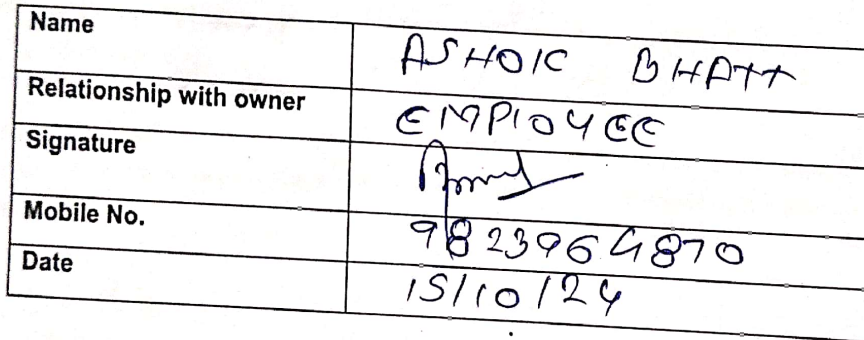 Name ASHOK BHATT
Relationship with owner EMPLOYEE
Signature
Mobile No. 9823964870
Date 15/10/24